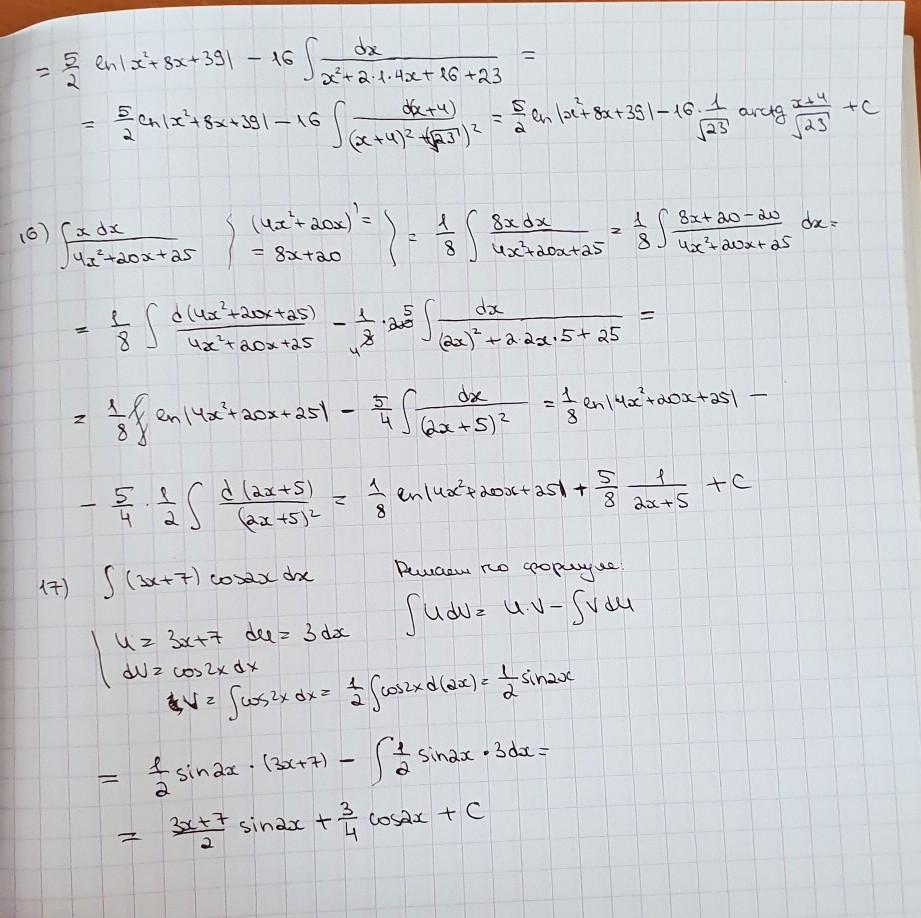 = 5/2 ln|x²+8x+39| - 16 ∫ dx/(x²+2·1·4x+16+23) =
= 5/2 ln|x²+8x+39| - 16 ∫ d(x+4)/((x+4)²+(√23)²) = 5/2 ln|x²+8x+39| - 16·1/√23 arctg (x+4)/√23 + C
16) ∫ x dx/(4x²+20x+25) { (4x²+20x)' = = 8x+20 } = 1/8 ∫ 8x dx/(4x²+20x+25) = 1/8 ∫ (8x+20-20)/(4x²+20x+25) dx =
= 1/8 ∫ d(4x²+20x+25)/(4x²+20x+25) - 1/8 · 20 ∫ dx/((2x)²+2·2x·5+25) =
= 1/8 ln|4x²+20x+25| - 5/4 ∫ dx/(2x+5)² = 1/8 ln|4x²+20x+25| -
- 5/4 · 1/2 ∫ d(2x+5)/(2x+5)² = 1/8 ln|4x²+20x+25| + 5/8 1/(2x+5) + C
17) ∫ (3x+7) cos2x dx Решаем по формуле:
∫ U dV = U·V - ∫ V dU
U = 3x+7 du = 3dx
dV = cos2x dx
V = ∫ cos2x dx = 1/2 ∫ cos2x d(2x) = 1/2 sin2x
= 1/2 sin2x · (3x+7) - ∫ 1/2 sin2x · 3dx =
= (3x+7)/2 sin2x + 3/4 cos2x + C